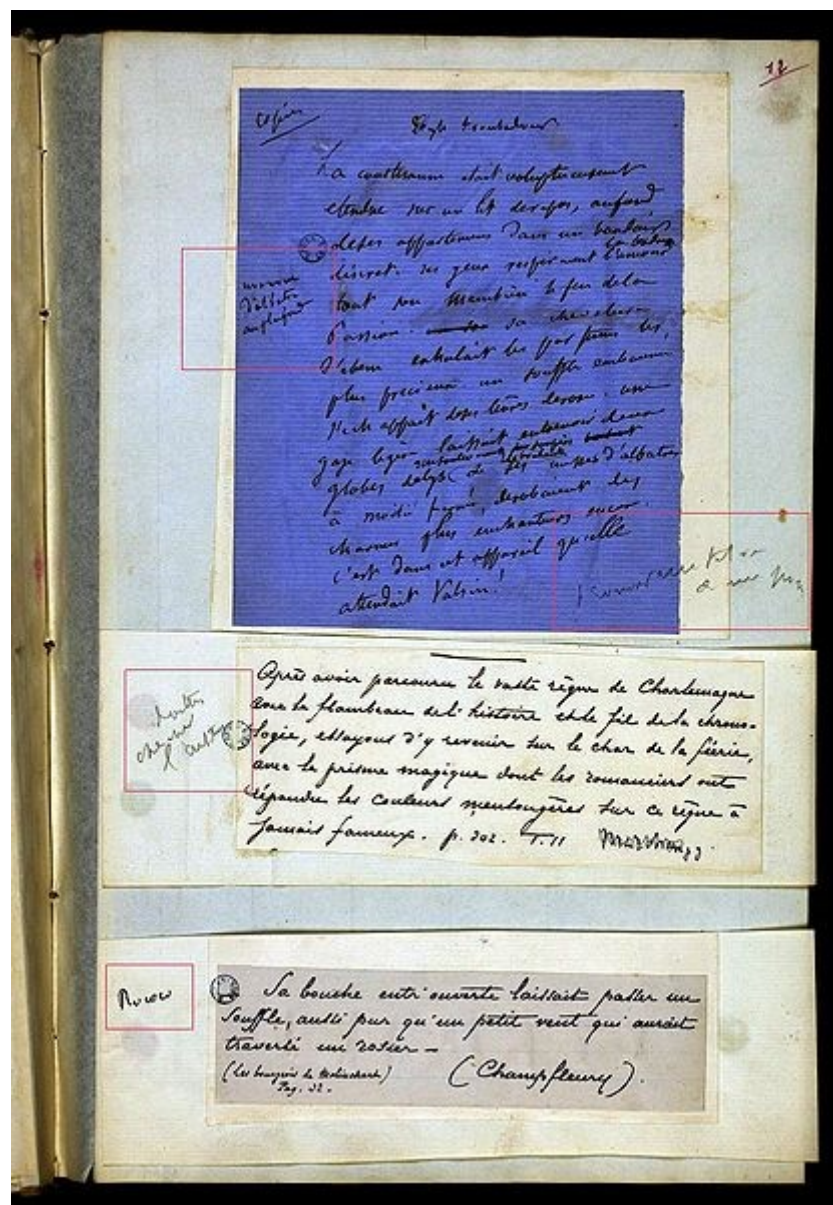 12
Copier
Style troubadour
La courtisane était voluptueusement
étendue sur un lit de repos, au fond
de ses appartemens dans un boudoir
discret. ses yeux respiraient l'amour
tout son maintien le feu de la
Passion. sa chevelure
d'ébène exhalait les parfums les
plus précieux. un souffle embaumé
s'échappait de ses lèvres de rose. une
gaze légère laissait entrevoir deux
globes
à moitié fermé, derobaient des
charmes plus enchanteurs encore.
c'est dans cet appareil qu'elle
attendait Valsin!
Après avoir parcouru le vaste règne de Charlemagne
avec le flambeau de l'histoire et le fil de la chrono-
logie, essayons d'y revenir sur le char de la féerie,
avec le prisme magique dont les romanciers ont
répandu les couleurs mensongères sur ce règne à
jamais fameux. p. 302. T. 11
chercher
l'auteur
Rococo
Sa bouche entr'ouverte laissait passer un
souffle, aussi pur qu'un petit vent qui aurait
traversé un rosier —
(Les bourgeois de Molinchart)
Pag. 32.
(Champfleury).